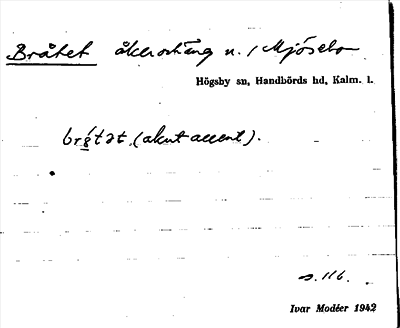 Bråtet åker o. äng u. / Mjösebo
Högsby sn, Handbörds hd, Kalm. l.
brǻtət, (akut accent).
s. 116.
Ivar Modéer 1942